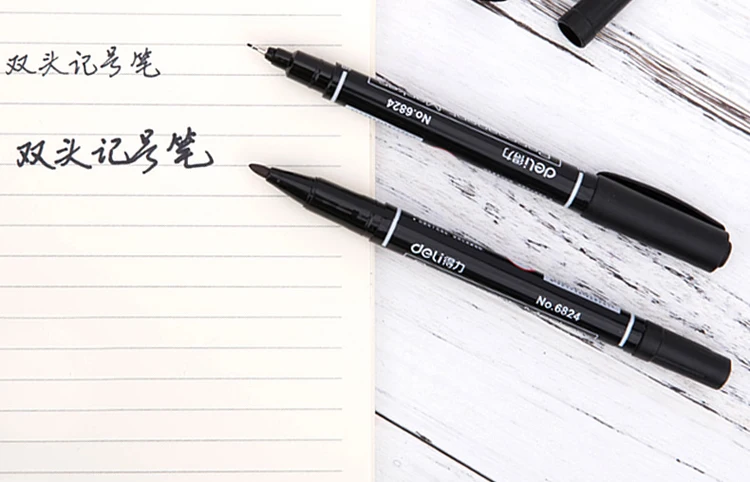 双头记号笔
双头记号笔
No.6824
deli得力
deli得力
No.6824